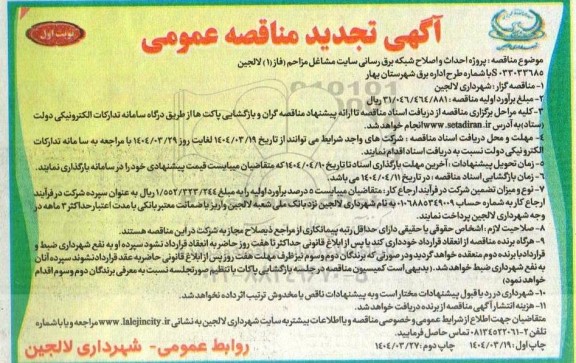 آگهی تجدید مناقصه عمومی
نوبت اول
موضوع مناقصه : پروژه احداث و اصلاح شبکه برق رسانی سایت مشاغل مزاحم (فاز۱) لالجین
S۰۳۰۳۳۶۸۵ با شماره طرح اداره برق شهرستان بهار
۱- مناقصه گزار : شهرداری لالجین
۲- مبلغ برآورد اولیه مناقصه : ۳۱/۰۴۶/۴۶۴/۸۸۱ ریال
۳- کلیه مراحل برگزاری مناقصه از دریافت اسناد مناقصه تا ارائه پیشنهاد مناقصه گران و بازگشایی پاکت ها از طریق درگاه سامانه تدارکات الکترونیکی دولت
(ستاد) به آدرس www.setadiran.ir انجام خواهد شد.
۴- مهلت و محل دریافت اسناد مناقصه : شرکت های واجد شرایط می توانند از تاریخ ۱۴۰۴/۰۳/۱۹ لغایت روز ۱۴۰۴/۰۳/۲۹ با مراجعه به سامانه تدارکات
الکترونیکی دولت نسبت به دریافت اسناد اقدام نمایند.
۵- زمان تحویل پیشنهادات : آخرین مهلت بارگذاری اسناد تا تاریخ ۱۴۰۴/۰۴/۱۰ که متقاضیان میبایست قیمت پیشنهادی خود را در سامانه بارگذاری نمایند.
۶- زمان بازگشایی اسناد مناقصه : در تاریخ ۱۴۰۴/۰۴/۱۱ می باشد.
۷- نوع و میزان تضمین شرکت در فرآیند ارجاع کار : متقاضیان میبایست ۵ درصد برآورد اولیه را به مبلغ ۱/۵۵۲/۳۲۳/۲۴۴ ریال به عنوان سپرده شرکت در فرآیند
ارجاع کار به شماره حساب ۰۱۰۶۸۸۵۳۴۹۰۰۹ به نام شهرداری لالجین نزد بانک ملی شعبه لالجین واریز یا ضمانت معتبر بانکی با مدت اعتبار حداکثر ۳ ماهه در
وجه شهرداری لالجین پرداخت نمایند.
۸- صلاحیت لازم : اشخاص حقوقی یا حقیقی دارای حداقل رتبه پیمانکاری از مراجع ذیصلاح مجاز به شرکت در این مناقصه هستند.
۹- هرگاه برنده مناقصه از انعقاد قرارداد خودداری کند یا پس از ابلاغ قانونی حداکثر تا هفت روز حاضر به انعقاد قرارداد نشود سپرده او به نفع شهرداری ضبط و
قرارداد با برنده دوم منعقد خواهد گردید و در صورتی که برندگان دوم و سوم نیز ظرف مهلت هفت روز پس از ابلاغ قانونی حاضر به عقد قرارداد نشوند سپرده آنان
به نفع شهرداری ضبط خواهد شد. (بدیهی است کمیسیون مناقصه در جلسه بازگشایی پاکات با تنظیم صورتجلسه نسبت به معرفی برندگان دوم و سوم اقدام
خواهد نمود)
۱۰- شهرداری در رد یا قبول پیشنهادات مختار است و به پیشنهادات ناقص یا مخدوش ترتیب اثر داده نخواهد شد.
۱۱- هزینه انتشار آگهی مناقصه از برنده دریافت خواهد شد.
متقاضیان جهت اطلاع از شرایط عمومی و خصوصی مناقصه و یا اطلاعات بیشتر به سایت شهرداری لالجین به نشانی www.lalejincity.ir مراجعه و یا با شماره
تلفن ۲-۰۸۱۳۴۵۲۲۰۶۱ تماس حاصل فرمایید.
چاپ اول : ۱۴۰۴/۰۳/۱۹ چاپ دوم : ۱۴۰۴/۰۳/۲۷
روابط عمومی- شهرداری لالجین